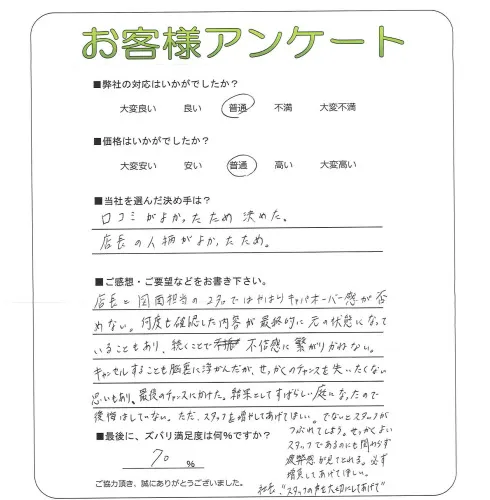 お客様アンケート
■弊社の対応はいかがでしたか?
大変良い 良い 普通 不満 大変不満
■価格はいかがでしたか?
大変安い 安い 普通 高い 大変高い
■当社を選んだ決め手は?
口コミがよかったため決めた。
店長の人柄がよかったため。
■ご感想・ご要望などをお書き下さい。
店長と図面担当の2名ではやはりキャパオーバー感が否
めない。何度も確認した内容が最終的に元の状態になって
いることもあり、続くことで 不信感に繋がりかねない。
キャンセルすることも脳裏に浮かんだが、せっかくのチャンスを失いたくない
思いもあり、最後のチャンスにかけた。結果としてすばらしい庭になったので
後悔はしていない。ただ、スタッフを増やしてあげてほしい。でないとスタッフが
つぶれてしまう。せっかくよい
■最後に、ズバリ満足度は何%ですか?
スタッフであるのにも関わらず
疲弊感が見てとれる。必ず
70 %
増員してあげてほしい。
ご協力頂き、誠にありがとうございました。
社長、"スタッフの声を大切にしてあげて"